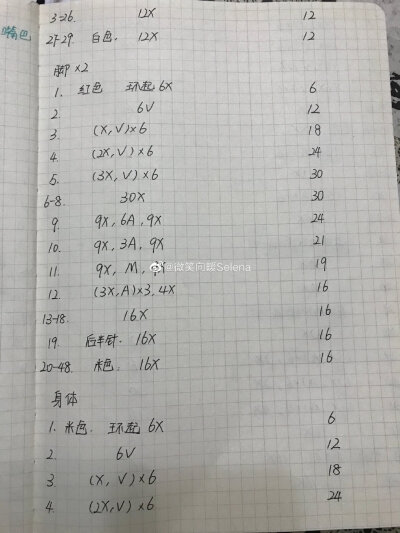 3-26. 12X 12
嘴巴 27-29. 白色. 12X 12
脚×2
1. 红色 环起 6X 6
2. 6V 12
3. (X, V)×6 18
4. (2X, V)×6 24
5. (3X, V)×6 30
6-8. 30X 30
9. 9X, 6A, 9X 24
10. 9X, 3A, 9X 21
11. 9X, M, 9X 19
@微笑向暖Selena
12. (3X, A)×3, 4X 16
13-18. 16X 16
19. 后半针. 16X 16
20-48. 米色. 16X 16
身体
1. 米色. 环起 6X 6
2. 6V 12
3. (X, V)×6 18
4. (2X, V)×6 24